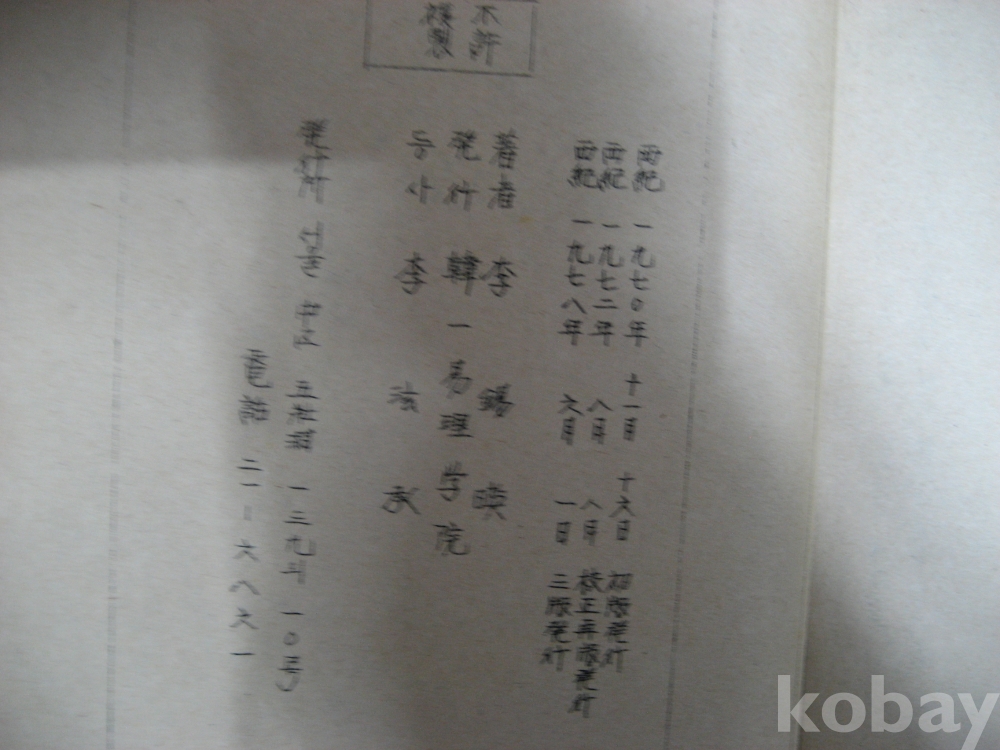 不許
複製
西紀 一九七〇年 十一月 十六日 初版発行
西紀 一九七二年 八月 八月 校正再版発行
西紀 一九七八年 六月 一日 三版発行
著者 李 錫 暎
発行 韓一易理学院
등사 李 法
発行所 서울 中区 一三九의 一〇号
電話 二一-六八六一
kobay